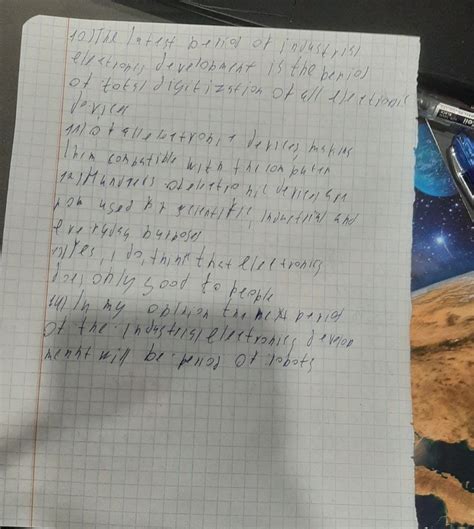 10) The latest period of industrial
electronic development is the period
of total digitization of all electronic
devices
11) of all electronic devices making
them compatible with the computer
12) Hundreds of electronic devices are
now used for scientific, industrial and
everyday purposes
13) Yes, I do, think that electronics
does only good to people
14) In my opinion the next period
of the industrial electronics develop
ment will be period of robots